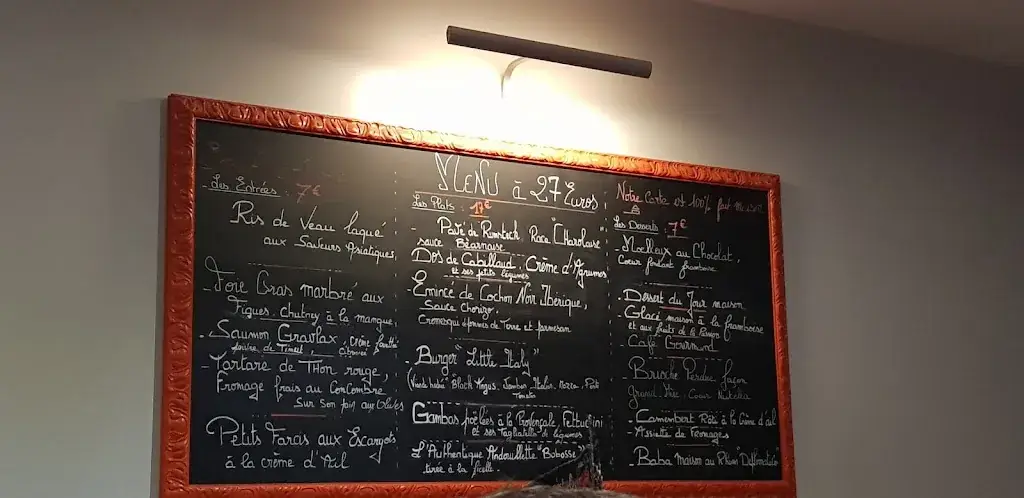 Menu à 27 Euros
Les Entrées : 7€
Ris de Veau laqué
aux Saveurs Asiatiques,
Foie Gras marbré aux
Figues, chutney à la mangue,
- Saumon Gravlax, crème
poivre de Timut,
- Tartare de Thon rouge,
Fromage frais au Concombre
Sur Son pain aux Olives
Petits Farcis aux Escargots
à la crème d'Ail
Les Plats : €
- Pavé de Rumsteck Race "Charolaise"
sauce Béarnaise
Dos de Cabillaud, Crème d'Agrumes
et ses petits légumes
Emincé de Cochon Noir Iberique,
Sauce Chorizo,
Cromesqui de Terre et parmesan
- Burger "Little Italy"
(Viande Black Angus, Jambon
Tomates
Gambas poêlées à la Provençale,
et ses Tagliatelle de légumes
- L'Authentique Andouillette "Bobosse"
tirée à la ficelle.
Notre Carte est 100% fait maison
Les Desserts : 7€
- Moelleux au Chocolat,
Coeur fondant framboise
- Dessert du Jour maison
- Glacé maison à la framboise
et aux fruits de la Passion
- Café Gourmand
- Brioche Perdue façon
Grand Mère, Coeur Nutella
- Camembert Rôti à la Crème d'ail
- Assiette de Fromages
- Baba Maison au Rhum